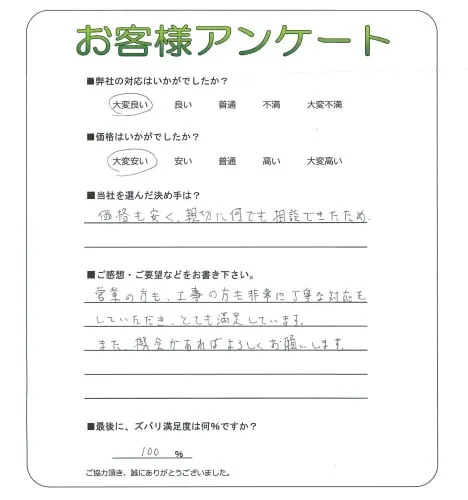 お客様アンケート
■弊社の対応はいかがでしたか？
大変良い 良い 普通 不満 大変不満
■価格はいかがでしたか？
大変安い 安い 普通 高い 大変高い
■当社を選んだ決め手は？
価格も安く、親切に何でも相談できたため.
■ご感想・ご要望などをお書き下さい。
営業の方も、工事の方も非常に丁寧な対応を
していただき、とても満足しています。
また、機会があればよろしくお願いします。
■最後に、ズバリ満足度は何%ですか？
100 %
ご協力頂き、誠にありがとうございました。